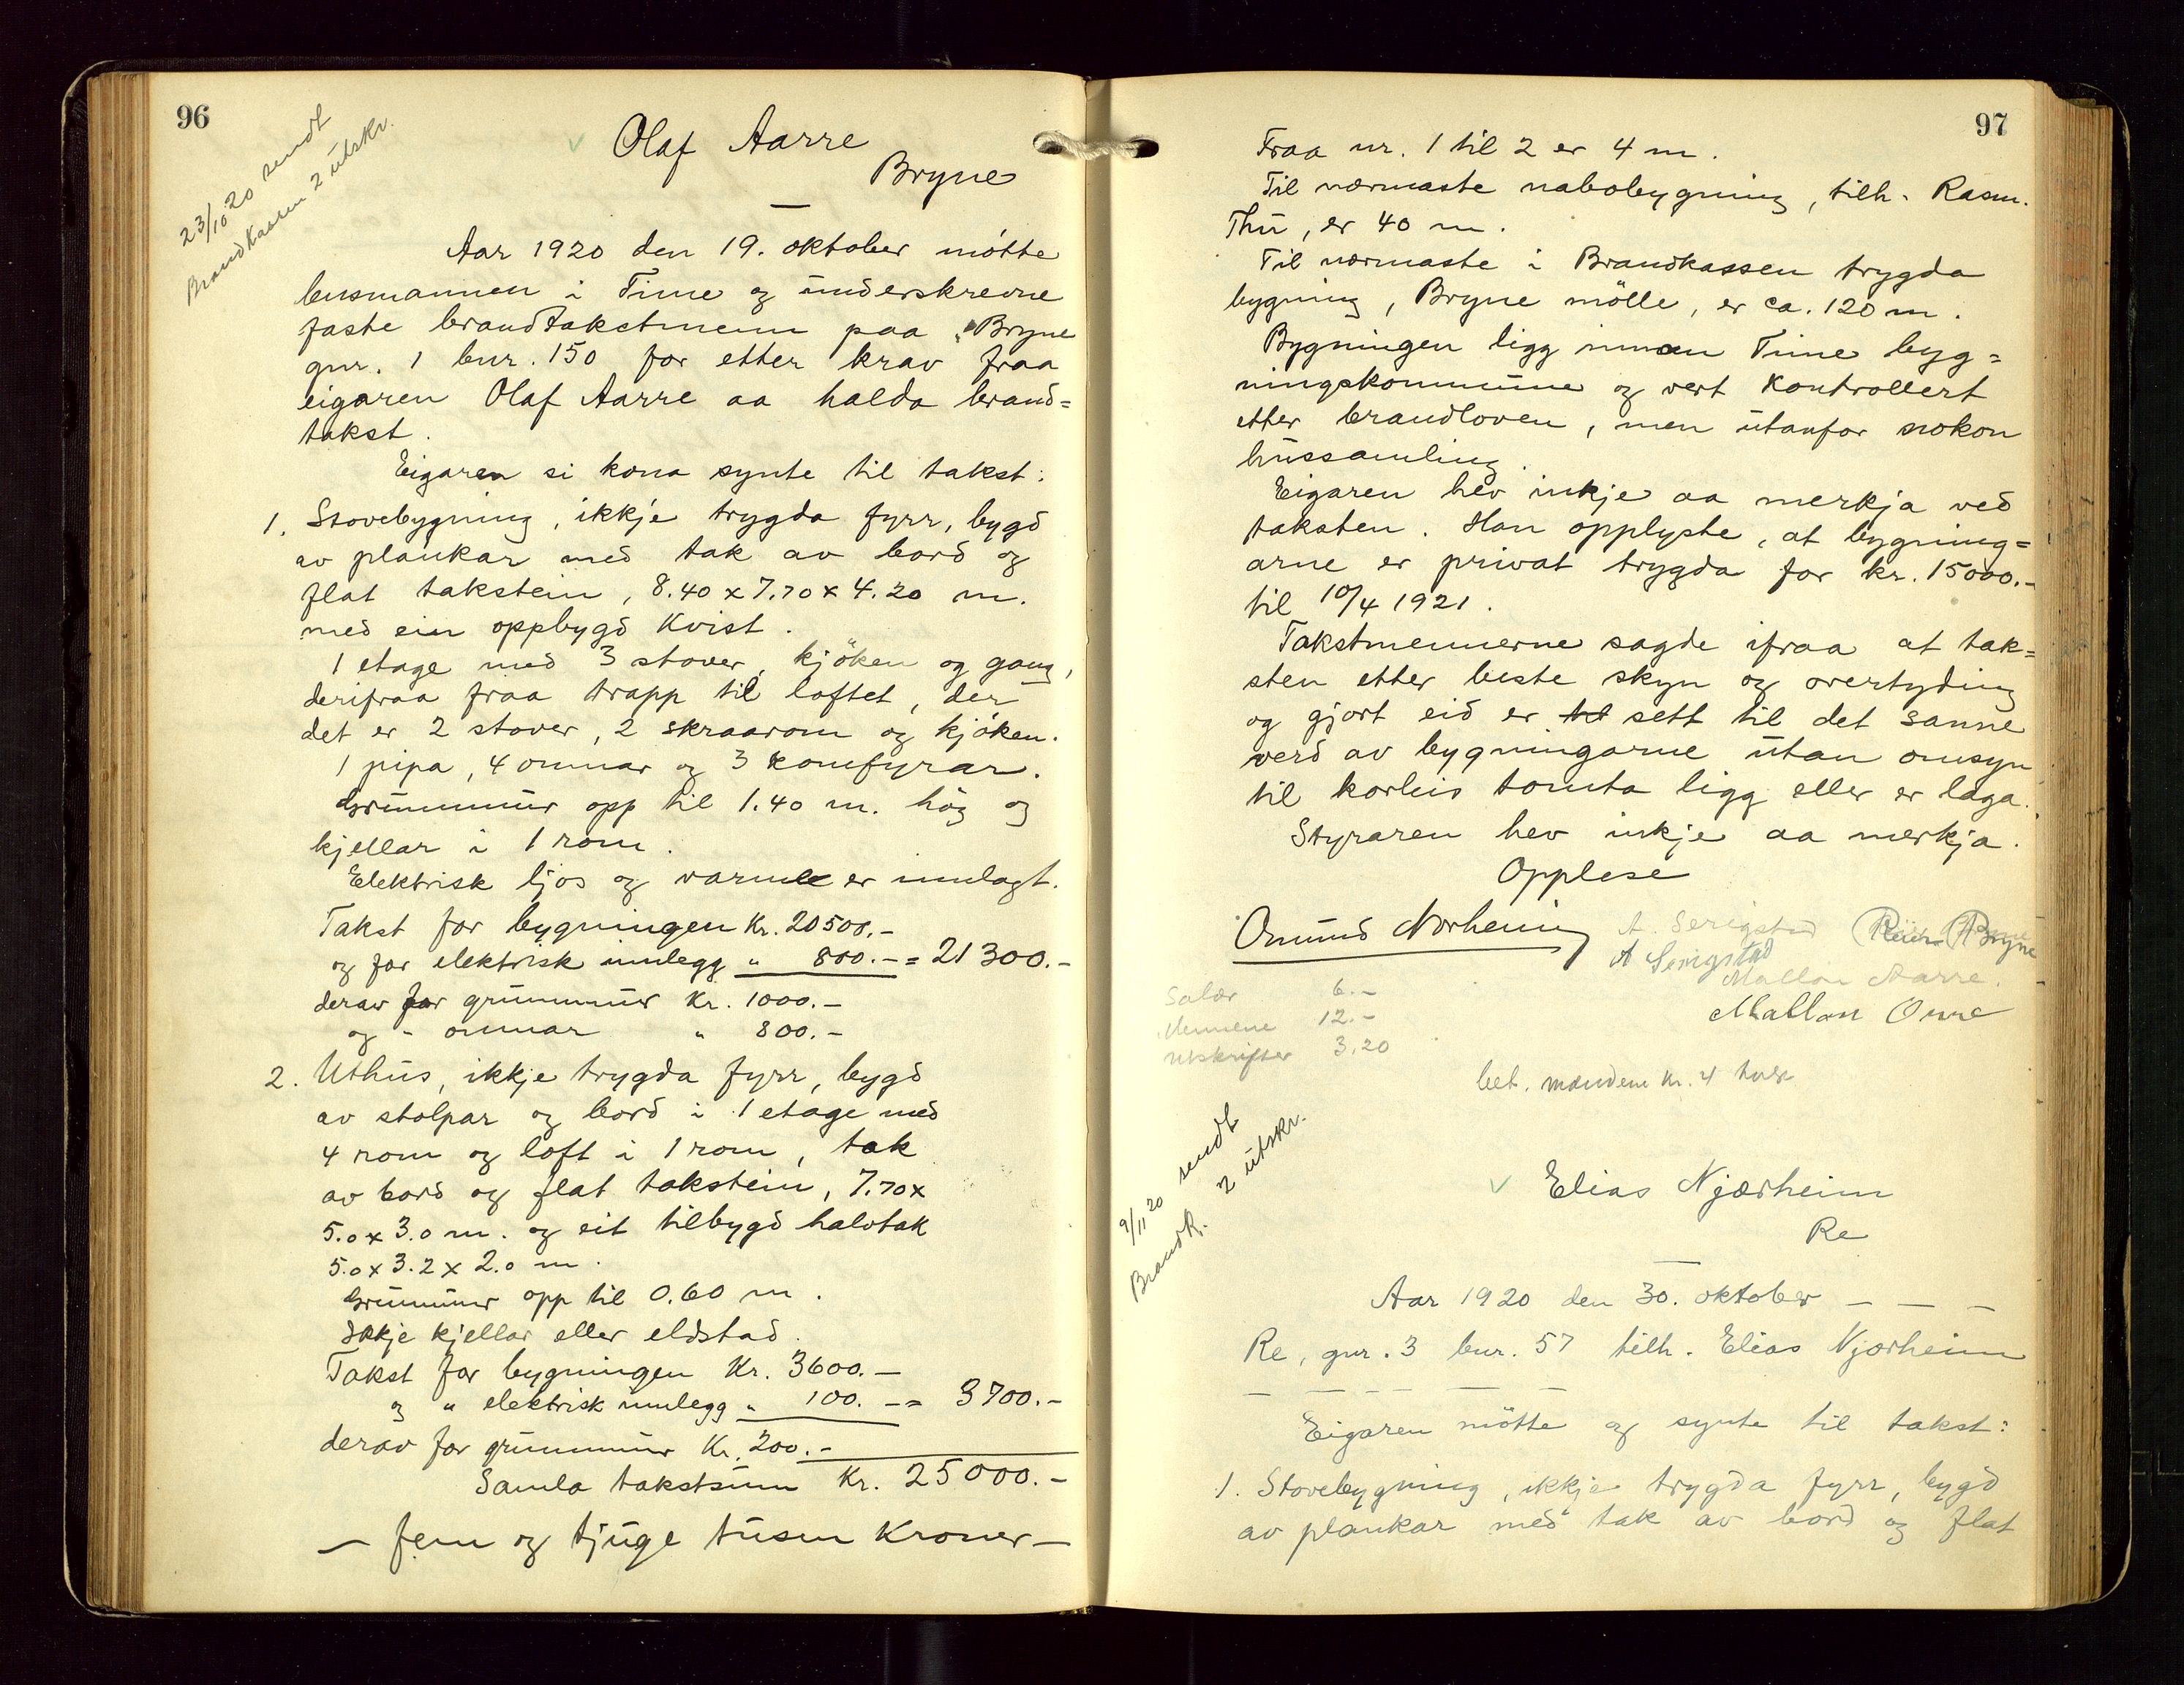 96
23/10 20 sendt
Brandkassen 2 utskr.
Olaf Aarre
Bryne
Aar 1920 den 19. oktober møtte
lensmannen i Time og underskrevne
faste brandtakstmenn paa Bryne
gnr. 1 bnr. 150 for etter krav fraa
eigaren Olaf Aarre aa halda brand=
takst.
Eigaren si kona synte til takst:
1. Stovebygning, ikkje trygda fyrr, bygd
av plankar med tak av bord og
flat takstein, 8.40 x 7.70 x 4.20 m.
med ein oppbygd kvist.
1 etage med 3 stover, kjöken og gang,
derifraa fraa trapp til loftet, der
det er 2 stover, 2 skraarom og kjöken.
1 pipa, 4 omnar og 3 komfyrar.
Grunnmur opp til 1.40 m. hög og
kjellar i 1 rom.
Elektrisk ljos og varme er innlagt.
Takst for bygningen Kr. 20500.-
og for elektrisk innlegg " 800.- = 21300.-
derav for grunnmur Kr. 1000.-
og " omnar " 800.-
2. Uthus, ikkje trygda fyrr, bygd
av stolpar og bord i 1 etage med
4 rom og loft i 1 rom, tak
av bord og flat takstein, 7.70 x
5.0 x 3.0 m. og eit tilbygd halvtak
5.0 x 3.2 x 2.0 m.
Grunnmur opp til 0.60 m.
Ikkje kjellar eller eldstad.
Takst for bygningen Kr. 3600.-
og " elektrisk innlegg " 100.- = 3700.-
derav for grunnmur Kr. 200.-
Samla takstsum Kr. 25000.-
- fem og tjuge tusen Kroner -
97
Fraa nr. 1 til 2 er 4 m.
Til nærmaste nabobygning, tilh. Rasm.
Thu, er 40 m.
Til nærmaste i Brandkassen trygda
bygning, Bryne mölle, er ca. 120 m.
Bygningen ligg innan Time byg=
ningskommune og vert kontrollert
etter brandloven, men utanfor nokon
hussamling.
Eigaren hev inkje aa merkja ved
taksten. Han opplyste, at bygning=
arne er privat trygda for kr. 15000.-
til 10/4 1921.
Takstmennerne sagde ifraa at tak=
sten etter beste skyn og overtyding
og gjort eid er sett til det sanne
verd av bygningarne utan omsyn
til korleis tomta ligg eller er laga.
Styraren hev inkje aa merkja.
Opplese
Omund Norheim A. Serigstad Reier Bryne
A Serigstad
Mallon Aarre.
Salær 6.-
Mennene 12.-
Utskrifter 3.20
bet. mændene kr. 4 hver
9/11 20 sendt
Brandk. 2 utskr.
Elias Njærheim
Re
Aar 1920 den 30. oktober - - -
Re, gnr. 3 bnr. 57 tilh. Elias Njærheim
- - - - - -
Eigaren møtte og synte til takst:
1. Stovebygning, ikkje trygda fyrr, bygd
av plankar med tak av bord og flat